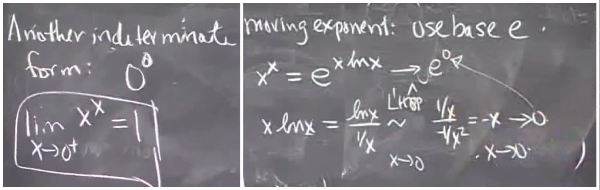 Another indeterminate
form: 0⁰
lim x^x = 1
x→0⁺
moving exponent: use base e.
x^x = e^(x ln x) → e⁰
x ln x = ln x / (1/x) ~ (L'Hop) (1/x) / (-1/x²) = -x → 0
x→0 x→0